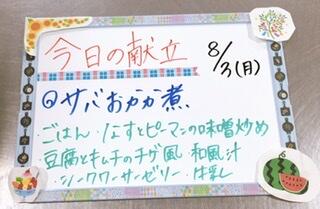 今日の献立
8/3(月)
@サバおかか煮、
・ごはん ・なすとピーマンの味噌炒め
・豆腐とキムチのチゲ風 和風汁
・シークワーサーゼリー ・牛乳